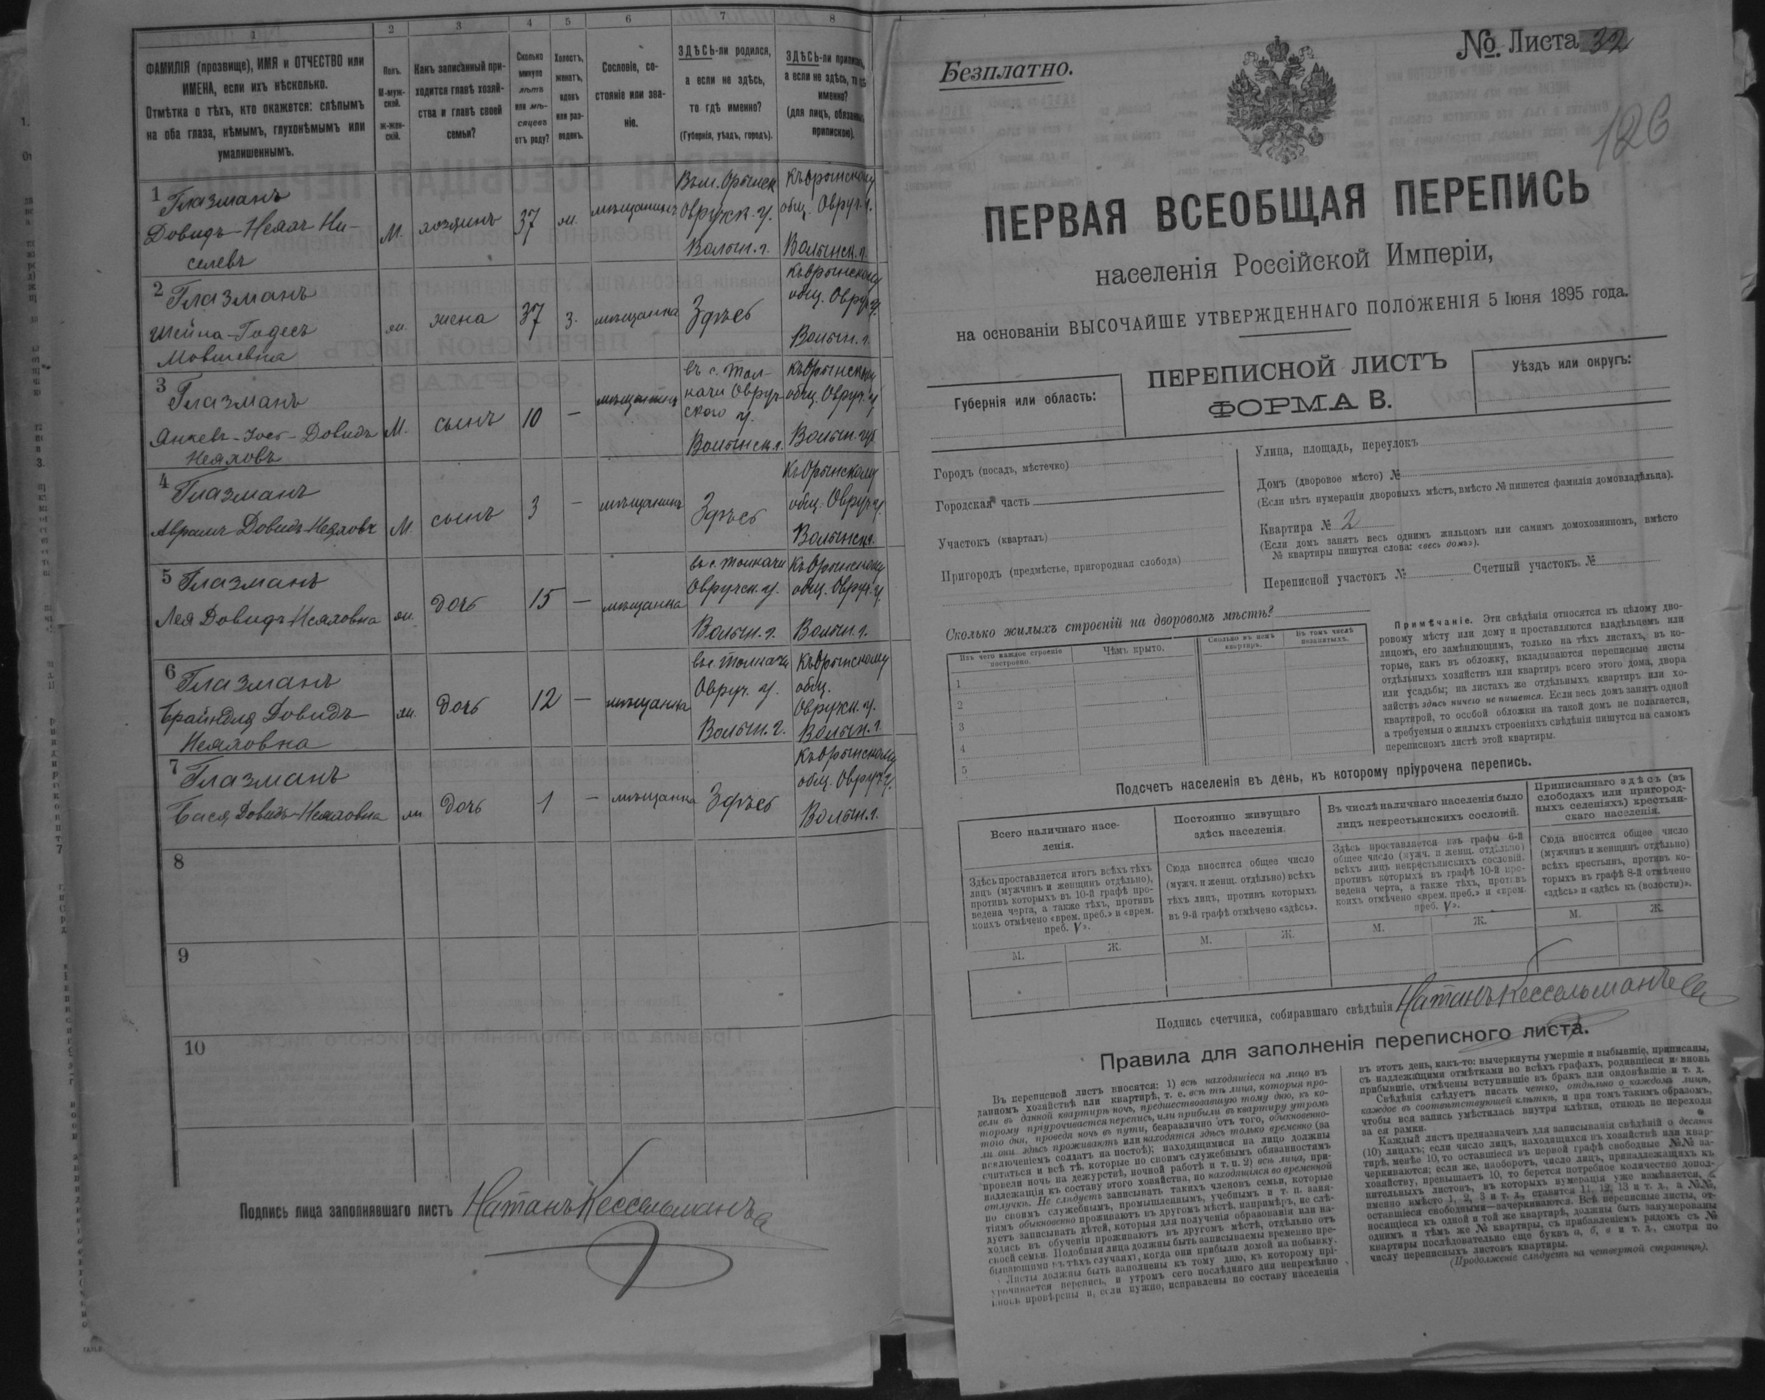 1
2
3
4
5
6
7
8
ФАМИЛІЯ (прозвище), ИМЯ и ОТЧЕСТВО или
ИМЕНА, если ихъ нѣсколько.
Отмѣтка о тѣхъ, кто окажется: слѣпымъ
на оба глаза, нѣмымъ, глухонѣмымъ или
умалишеннымъ.
Полъ.
М-муж-
ской.
ж-жен-
скій.
Какъ записанный при-
ходится главѣ хозяй-
ства и главѣ своей
семьи?
Сколько
минуло
лѣтъ
или мѣ-
сяцевъ
отъ роду?
Холостъ,
женатъ,
вдовъ
или раз-
веденъ.
Сословіе, со-
стояніе или зва-
ніе.
ЗДѢСЬ-ли родился,
а если не здѣсь,
то гдѣ именно?
(Губернія, уѣздъ, городъ).
ЗДѢСЬ-ли приписанъ,
а если не здѣсь, то гдѣ
именно?
(для лицъ, обязанныхъ
припискою).
1 Глазманъ
Довидъ-
М.
хозяинъ
37
мѣщанинъ
Овручск. у.
Волын. г.
общ. Овруч.
Волынск. г.
2 Глазманъ
Мовшевна
жена
37
з.
мѣщанка
Здѣсь
общ. Овруч. у.
Волын. г.
3 Глазманъ
М.
сынъ
10
—
въ с. Тол-
качи Овруч-
скаго у.
Волынск. г.
общ. Овруч. у.
Волын. губ.
4 Глазманъ
М.
сынъ
3
—
мѣщанинъ
Здѣсь
общ. Овруч. у.
Волынск.
5 Глазманъ
Лея Довидъ-
дочь
15
—
мѣщанка
въ с. Толкачи
Овручск. у.
Волын. г.
общ. Овруч. у.
Волын. г.
6 Глазманъ
Брайндля Довидъ-
дочь
12
—
мѣщанка
въ с. Толкачи
Овруч. у.
Волын. г.
общ.
Овручск. у.
Волын. г.
7 Глазманъ
Бася Довидъ-
дочь
1
—
мѣщанка
Здѣсь
общ. Овруч. у.
Волын. г.
8
9
10
Подпись лица заполнявшаго листъ Натанъ Кессельманъ
Безплатно.
№ Листа 32
126
ПЕРВАЯ ВСЕОБЩАЯ ПЕРЕПИСЬ
населенія Россійской Имперіи,
на основаніи ВЫСОЧАЙШЕ УТВЕРЖДЕННАГО ПОЛОЖЕНІЯ 5 Іюня 1895 года.
ПЕРЕПИСНОЙ ЛИСТЪ
ФОРМА В.
Губернія или область:
Уѣздъ или округъ:
Городъ (посадъ, мѣстечко)
Городская часть
Участокъ (кварталъ)
Пригородъ (предмѣстье, пригородная слобода)
Улица, площадь, переулокъ
Домъ (дворовое мѣсто) №
(Если нѣтъ нумераціи дворовыхъ мѣстъ, вмѣсто № пишется фамилія домовладѣльца).
Квартира № 2
(Если домъ занятъ весь однимъ жильцомъ или самимъ домохозяиномъ, вмѣсто
№ квартиры пишутся слова: «весь домъ»).
Переписной участокъ № Счетный участокъ. №
Сколько жилыхъ строеній на дворовомъ мѣстѣ?
Изъ чего каждое строеніе
построено.
Чѣмъ крыто.
Сколько въ немъ
квартиръ.
Въ томъ числѣ
незанятыхъ.
1
2
3
4
5
Примѣчаніе. Эти свѣдѣнія относятся къ цѣлому дво-
ровому мѣсту или дому и проставляются владѣльцемъ или
лицомъ, его замѣняющимъ, только на тѣхъ листахъ, въ ко-
торые, какъ въ обложку, вкладываются переписные листы
отдѣльныхъ хозяйствъ или квартиръ всего этого дома, двора
или усадьбы; на листахъ же отдѣльныхъ квартиръ или хо-
зяйствъ здѣсь ничего не пишется. Если весь домъ занятъ одной
квартирой, то особой обложки на такой домъ не полагается,
а требуемыя о жилыхъ строеніяхъ свѣдѣнія пишутся на самомъ
переписномъ листѣ этой квартиры.
Подсчетъ населенія въ день, къ которому пріурочена перепись.
Всего наличнаго насе-
ленія.
Постоянно живущаго
здѣсь населенія.
Въ числѣ наличнаго населенія было
лицъ некрестьянскихъ сословій.
Приписаннаго здѣсь (въ
слободахъ или пригород-
ныхъ селеніяхъ) крестьян-
скаго населенія.
Здѣсь проставляется итогъ всѣхъ тѣхъ
лицъ (мужчинъ и женщинъ отдѣльно),
противъ которыхъ въ 10-й графѣ про-
ведена черта, а также тѣхъ, противъ
коихъ отмѣчено «врем. преб.» и «врем.
преб. V».
Сюда вносится общее число
(мужч. и женщ. отдѣльно) всѣхъ
тѣхъ лицъ, противъ которыхъ
въ 9-й графѣ отмѣчено «здѣсь».
Здѣсь проставляется изъ графы 6-й
общее число (мужч. и женщ. отдѣльно)
всѣхъ лицъ некрестьянскихъ сословій,
противъ которыхъ въ графѣ 10-й про-
ведена черта, а также тѣхъ, противъ
коихъ отмѣчено «врем. преб.» и «врем.
преб. V».
Сюда вносится общее число
(мужчинъ и женщинъ отдѣльно)
всѣхъ крестьянъ, противъ ко-
торыхъ въ графѣ 8-й отмѣчено
«здѣсь» и «здѣсь къ (волости)».
М.
Ж.
М.
Ж.
М.
Ж.
М.
Ж.
Подпись счетчика, собиравшаго свѣдѣнія Натанъ Кессельманъ
Правила для заполненія переписного листа.
Въ переписной листъ вносятся: 1) всѣ находящіеся на лицо въ
данномъ хозяйствѣ или квартирѣ, т. е. всѣ тѣ лица, которыя про-
вели въ данной квартирѣ ночь, предшествовавшую тому дню, къ ко-
торому пріурочивается перепись, или прибыли въ квартиру утромъ
того дня, проведя ночь въ пути, безразлично отъ того, обыкновенно-
ли они здѣсь проживаютъ или находятся здѣсь только временно (за
исключеніемъ солдатъ на постоѣ); находящимися на лицо должны
считаться и всѣ тѣ, которые по своимъ служебнымъ обязанностямъ
провели ночь на дежурствѣ, ночной работѣ и т. п. 2) всѣ лица, при-
надлежащія къ составу этого хозяйства, но находящіяся во временной
отлучкѣ. Не слѣдуетъ записывать такихъ членовъ семьи, которые
по своимъ служебнымъ, промышленнымъ, учебнымъ и т. п. заня-
тіямъ обыкновенно проживаютъ въ другомъ мѣстѣ, напримѣръ, не слѣ-
дуетъ записывать дѣтей, которыя для полученія образованія или на-
ходясь въ обученіи проживаютъ въ другомъ мѣстѣ, отдѣльно отъ
своей семьи. Подобныя лица должны быть записываемы временно пре-
бывающими въ тѣхъ случаяхъ, когда они прибыли домой на побывку.
Листы должны быть заполнены къ тому дню, къ которому прі-
урочивается перепись, и утромъ сего послѣдняго дня непремѣнно
вновь провѣрены и, если нужно, исправлены по составу населенія
въ этотъ день, какъ-то: вычеркнуты умершіе и выбывшіе, приписаны,
съ надлежащими отмѣтками во всѣхъ графахъ, родившіеся и вновь
прибывшіе, отмѣчены вступившіе въ бракъ или овдовѣвшіе и т. д.
Свѣдѣнія слѣдуетъ писать четко, отдѣльно о каждомъ лицѣ,
каждое въ соотвѣтствующей клѣткѣ, и при томъ такимъ образомъ,
чтобы вся запись умѣстилась внутри клѣтки, отнюдь не переходя
за ея рамки.
Каждый листъ предназначенъ для записыванія свѣдѣній о десяти
(10) лицахъ; если число лицъ, находящихся въ хозяйствѣ или квар-
тирѣ, менѣе 10, то оставшіеся въ первой графѣ свободные №№ за-
черкиваются; если же, наоборотъ, число лицъ, принадлежащихъ къ
хозяйству, превышаетъ 10, то берется потребное количество допол-
нительныхъ листовъ, въ которыхъ нумерація уже измѣняется, а
именно вмѣсто 1, 2, 3 и т. д., ставится 11, 12, 13 и т. д., а №№,
оставшіеся свободными—зачеркиваются. Всѣ переписные листы, от-
носящіеся къ одной и той же квартирѣ, должны быть занумерованы
однимъ и тѣмъ же № квартиры, съ прибавленіемъ рядомъ съ №
квартиры послѣдовательно еще буквъ а, б, в и т. д., смотря по
числу переписныхъ листовъ квартиры.
(Продолженіе слѣдуетъ на четвертой страницѣ).